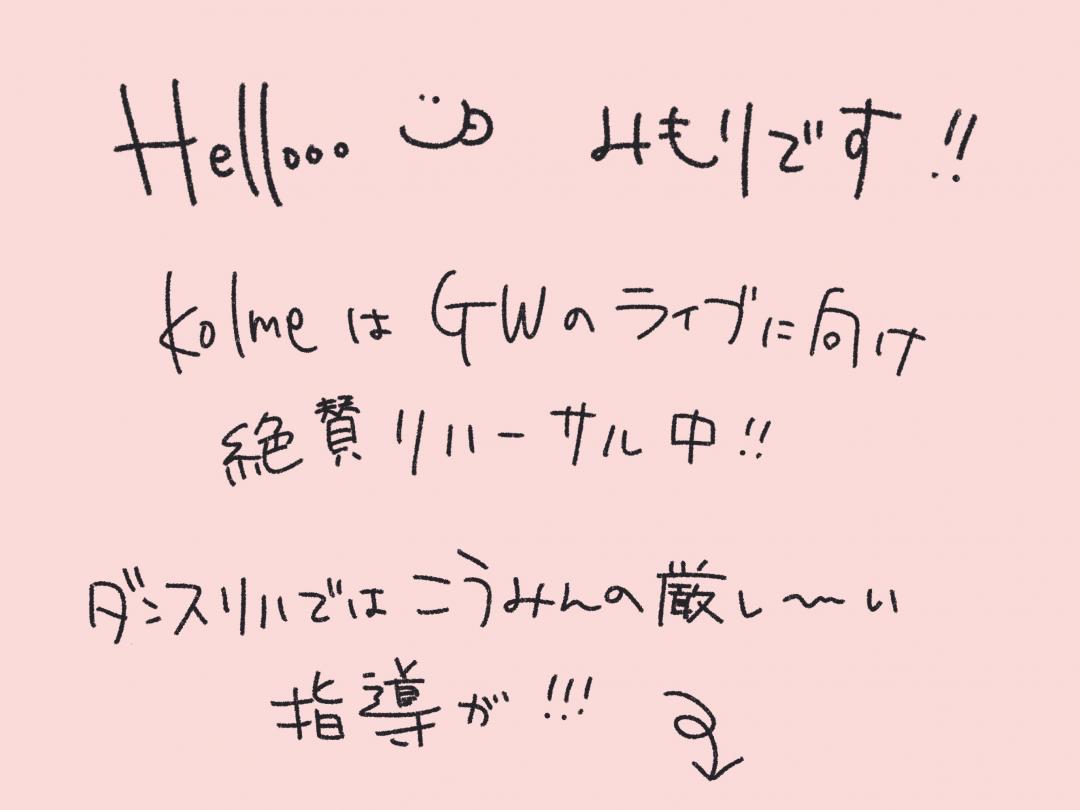 Hello... みもりです!!
kolmeはGWのライブに向け
絶賛リハーサル中!!
ダンスリハではこうみんの厳し〜い
指導が!!!